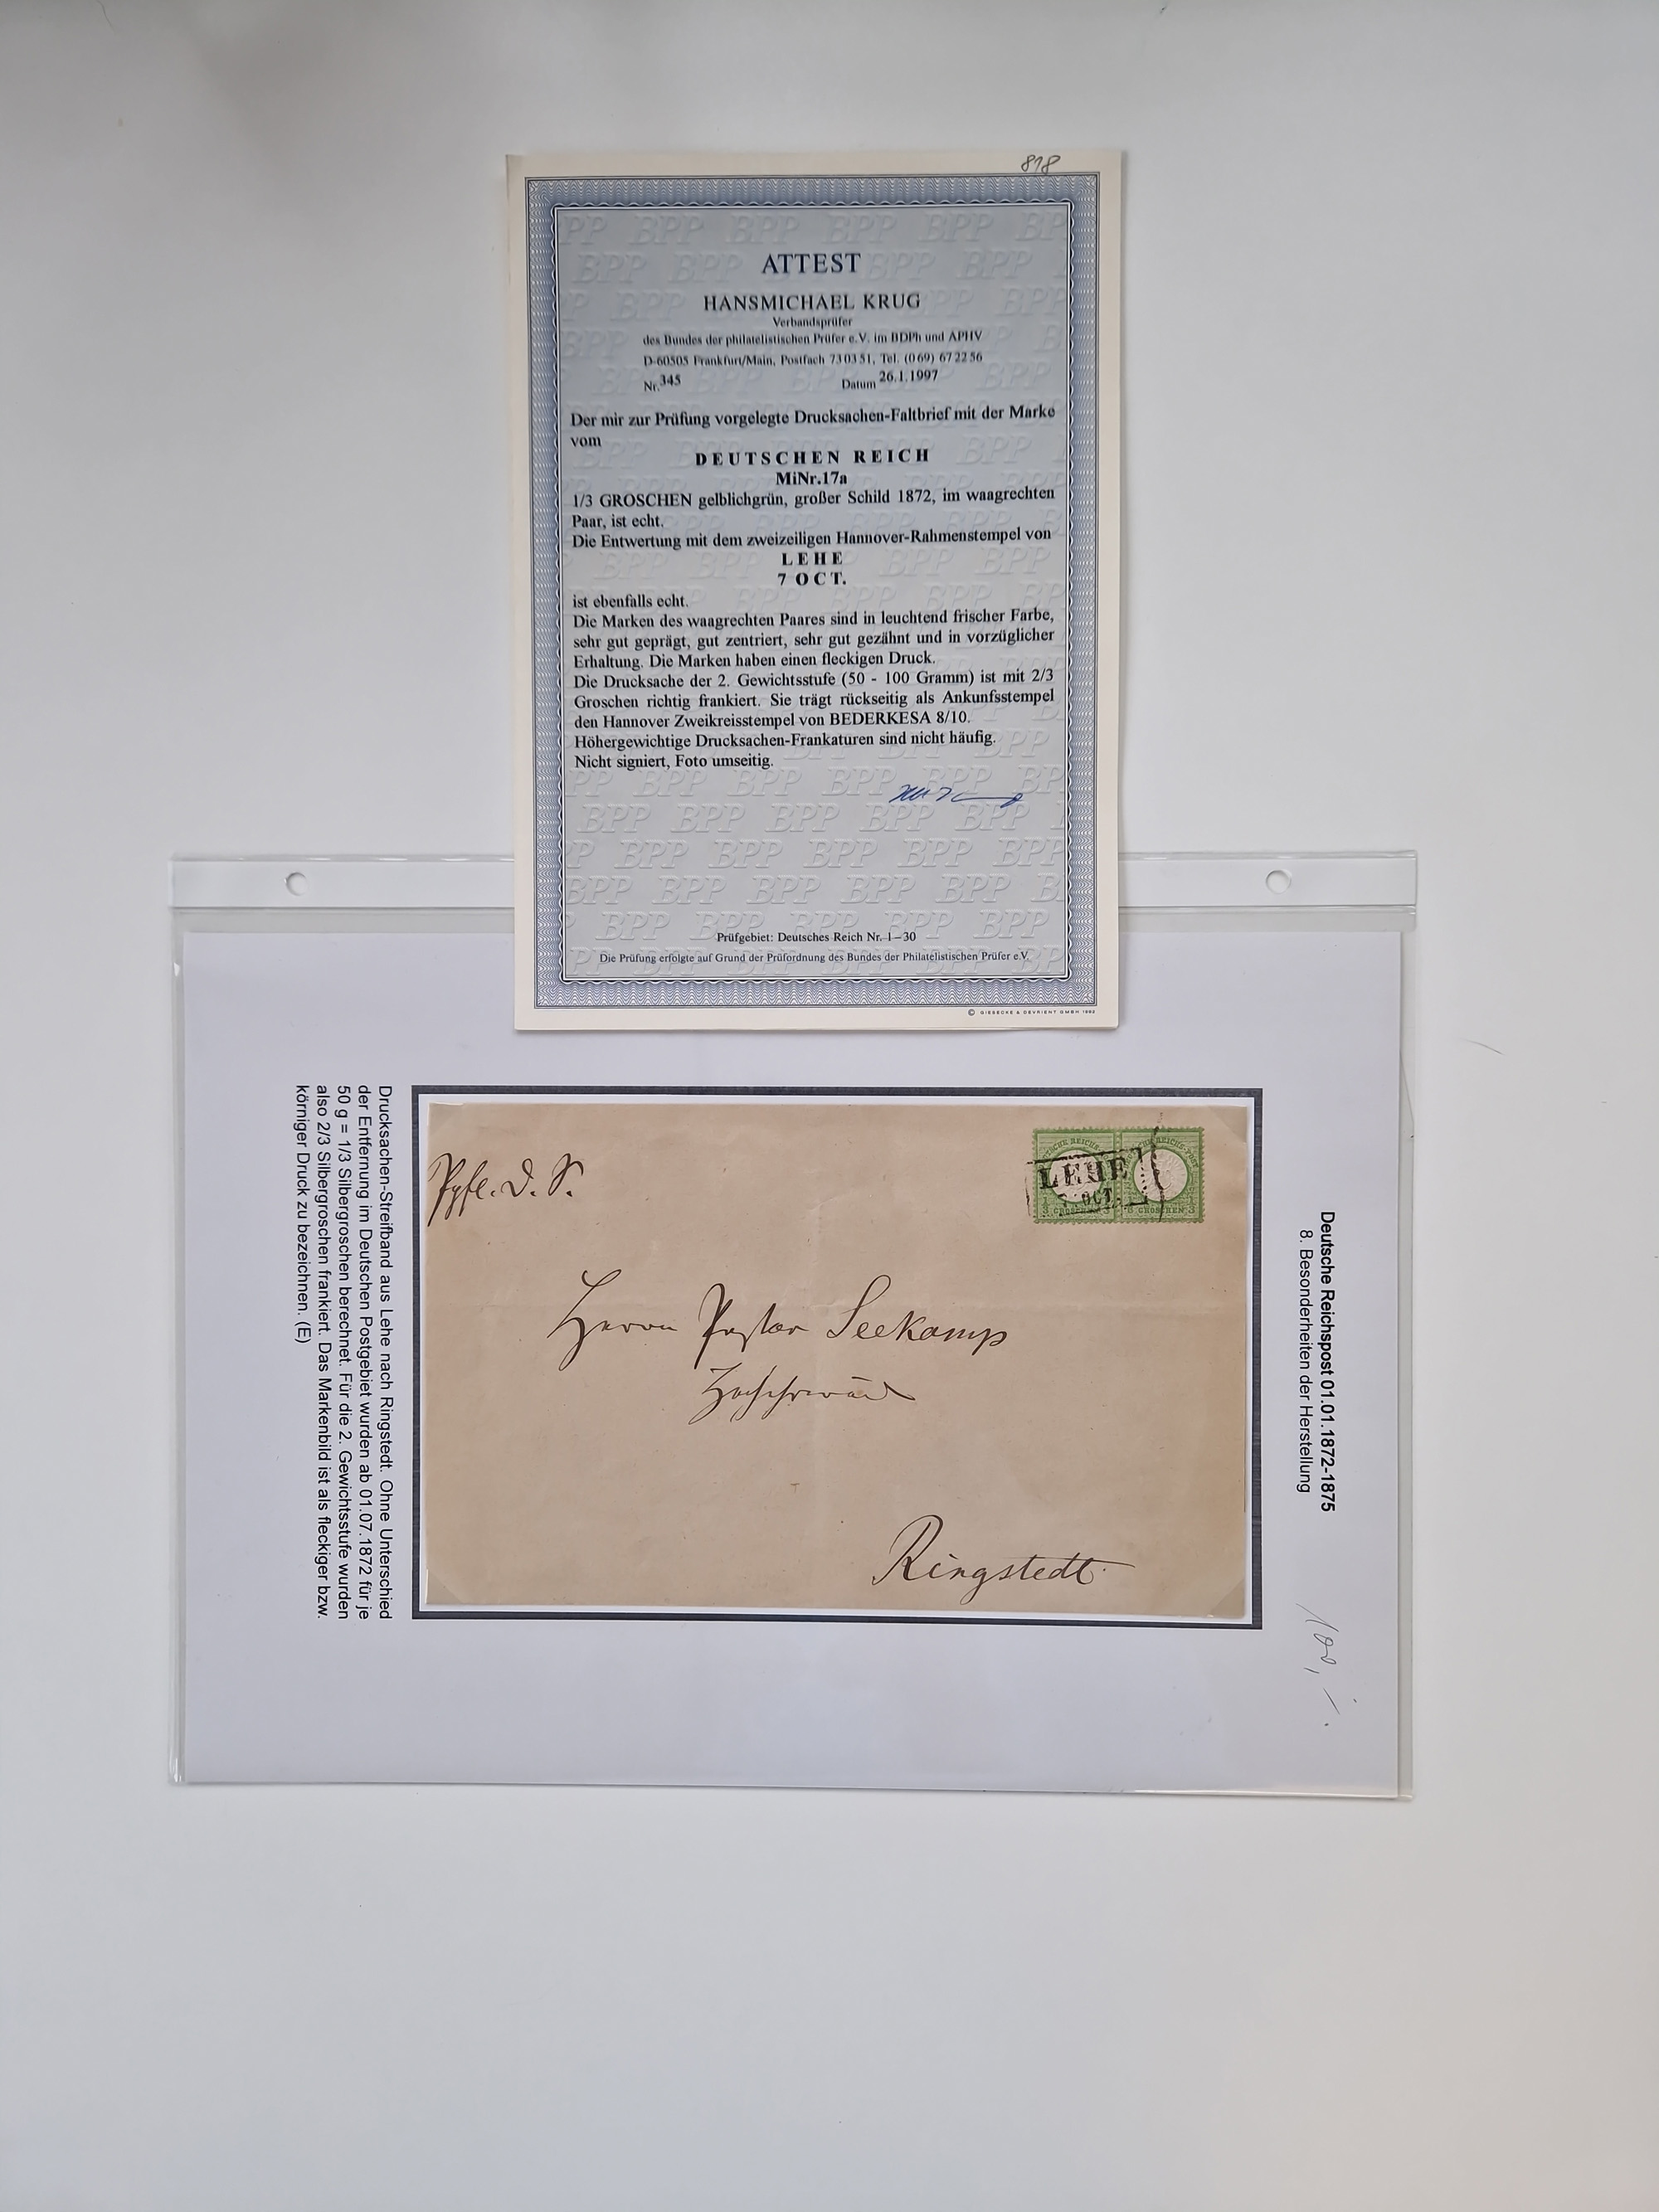 818
ATTEST
HANSMICHAEL KRUG
Verbandsprüfer
des Bundes der philatelistischen Prüfer e.V. im BDPh und APHV
D-60505 Frankfurt/Main, Postfach 730351, Tel. (069) 672256
Nr. 345 Datum 26.1.1997
Der mir zur Prüfung vorgelegte Drucksachen-Faltbrief mit der Marke
vom
DEUTSCHEN REICH
MiNr.17a
1/3 GROSCHEN gelblichgrün, großer Schild 1872, im waagrechten
Paar, ist echt.
Die Entwertung mit dem zweizeiligen Hannover-Rahmenstempel von
LEHE
7 OCT.
ist ebenfalls echt.
Die Marken des waagrechten Paares sind in leuchtend frischer Farbe,
sehr gut geprägt, gut zentriert, sehr gut gezähnt und in vorzüglicher
Erhaltung. Die Marken haben einen fleckigen Druck.
Die Drucksache der 2. Gewichtsstufe (50 - 100 Gramm) ist mit 2/3
Groschen richtig frankiert. Sie trägt rückseitig als Ankunfsstempel
den Hannover Zweikreisstempel von BEDERKESA 8/10.
Höhergewichtige Drucksachen-Frankaturen sind nicht häufig.
Nicht signiert, Foto umseitig.
Prüfgebiet: Deutsches Reich Nr. 1–30
Die Prüfung erfolgte auf Grund der Prüfordnung des Bundes der Philatelistischen Prüfer e.V.
© GIESECKE & DEVRIENT GMBH 1992
Deutsche Reichspost 01.01.1872-1875
8. Besonderheiten der Herstellung
100,-.
LEHE
OCT.
Herrn Pastor Seekamp
Ringstedt.
Drucksachen-Streifband aus Lehe nach Ringstedt. Ohne Unterschied
der Entfernung im Deutschen Postgebiet wurden ab 01.07.1872 für je
50 g = 1/3 Silbergroschen berechnet. Für die 2. Gewichtsstufe wurden
also 2/3 Silbergroschen frankiert. Das Markenbild ist als fleckiger bzw.
körniger Druck zu bezeichnen. (E)